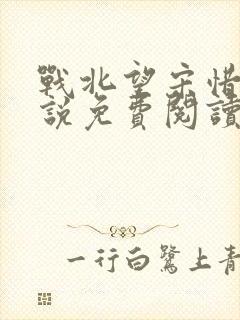 戰北望宋惜
說免費閱讀
一行白鷺上青